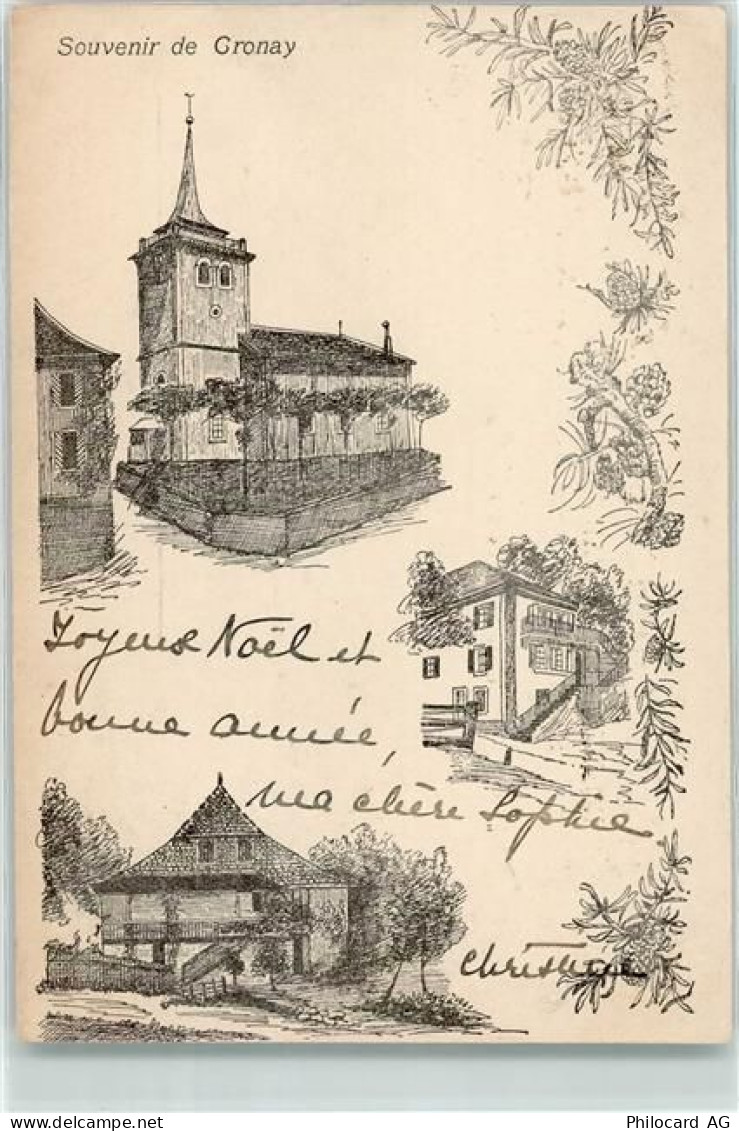 Souvenir de Gronay
Joyeux Noël et
bonne année,
ma chère Sophie
Christine
www.delcampe.net
Philocard AG